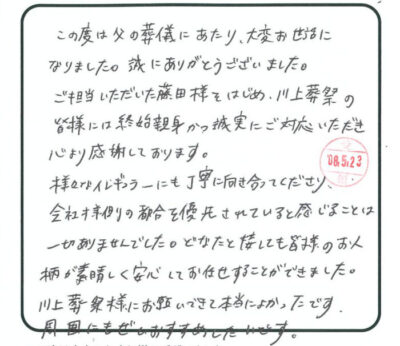 この度は父の葬儀にあたり、大変お世話に
なりました。誠にありがとうございました。
ご担当いただいた藤田様をはじめ、川上葬祭の
皆様には終始親身かつ誠実にご対応いただき
心より感謝しております。
様々なイレギュラーにも丁寧に向き合ってくださり、
会社様側の都合を優先されていると感じることは
一切ありませんでした。どなたと接しても皆様のお人
柄が素晴しく安心してお任せすることができました。
川上葬祭様にお願いできて本当によかったです.
周囲にもぜひおすすめしたいです。
08.5.23